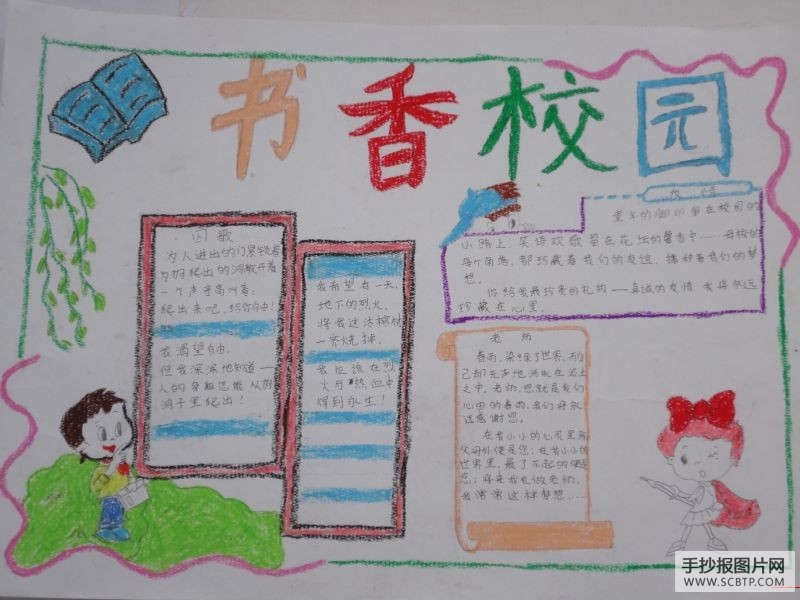 书香校园
囚歌
为人进出的门紧锁着
为狗爬出的洞敞开着
一个声音高叫着:
爬出来吧,给你自由!
我渴望自由,
但我深深地知道—
人的身躯怎能从狗
洞子里爬出!
我希望有一天,
地下的烈火,
将我这活棺材
一齐烧掉,
我应该在烈
火与热血中
得到永生!
友情
童年的脚印留在校园的
小路上,笑语欢歌留在花坛的馨香中……母校的
每个角落,都珍藏着我们的友谊、播种着我们的梦
想。
你给我最珍贵的礼物——真诚的友情,我将永远
珍藏在心里。
老师
春雨,染绿了世界,而自
己却无声地消失在泥土
之中。老师,您就是我们
心田的春雨,我们将永
远感谢您。
在我小小的心灵里
父母外便是您;在我小小的
世界里,最了不起的便是
您;将来我也做老师,
我常常这样梦想……
手抄报图片网
WWW.SCBTP.COM